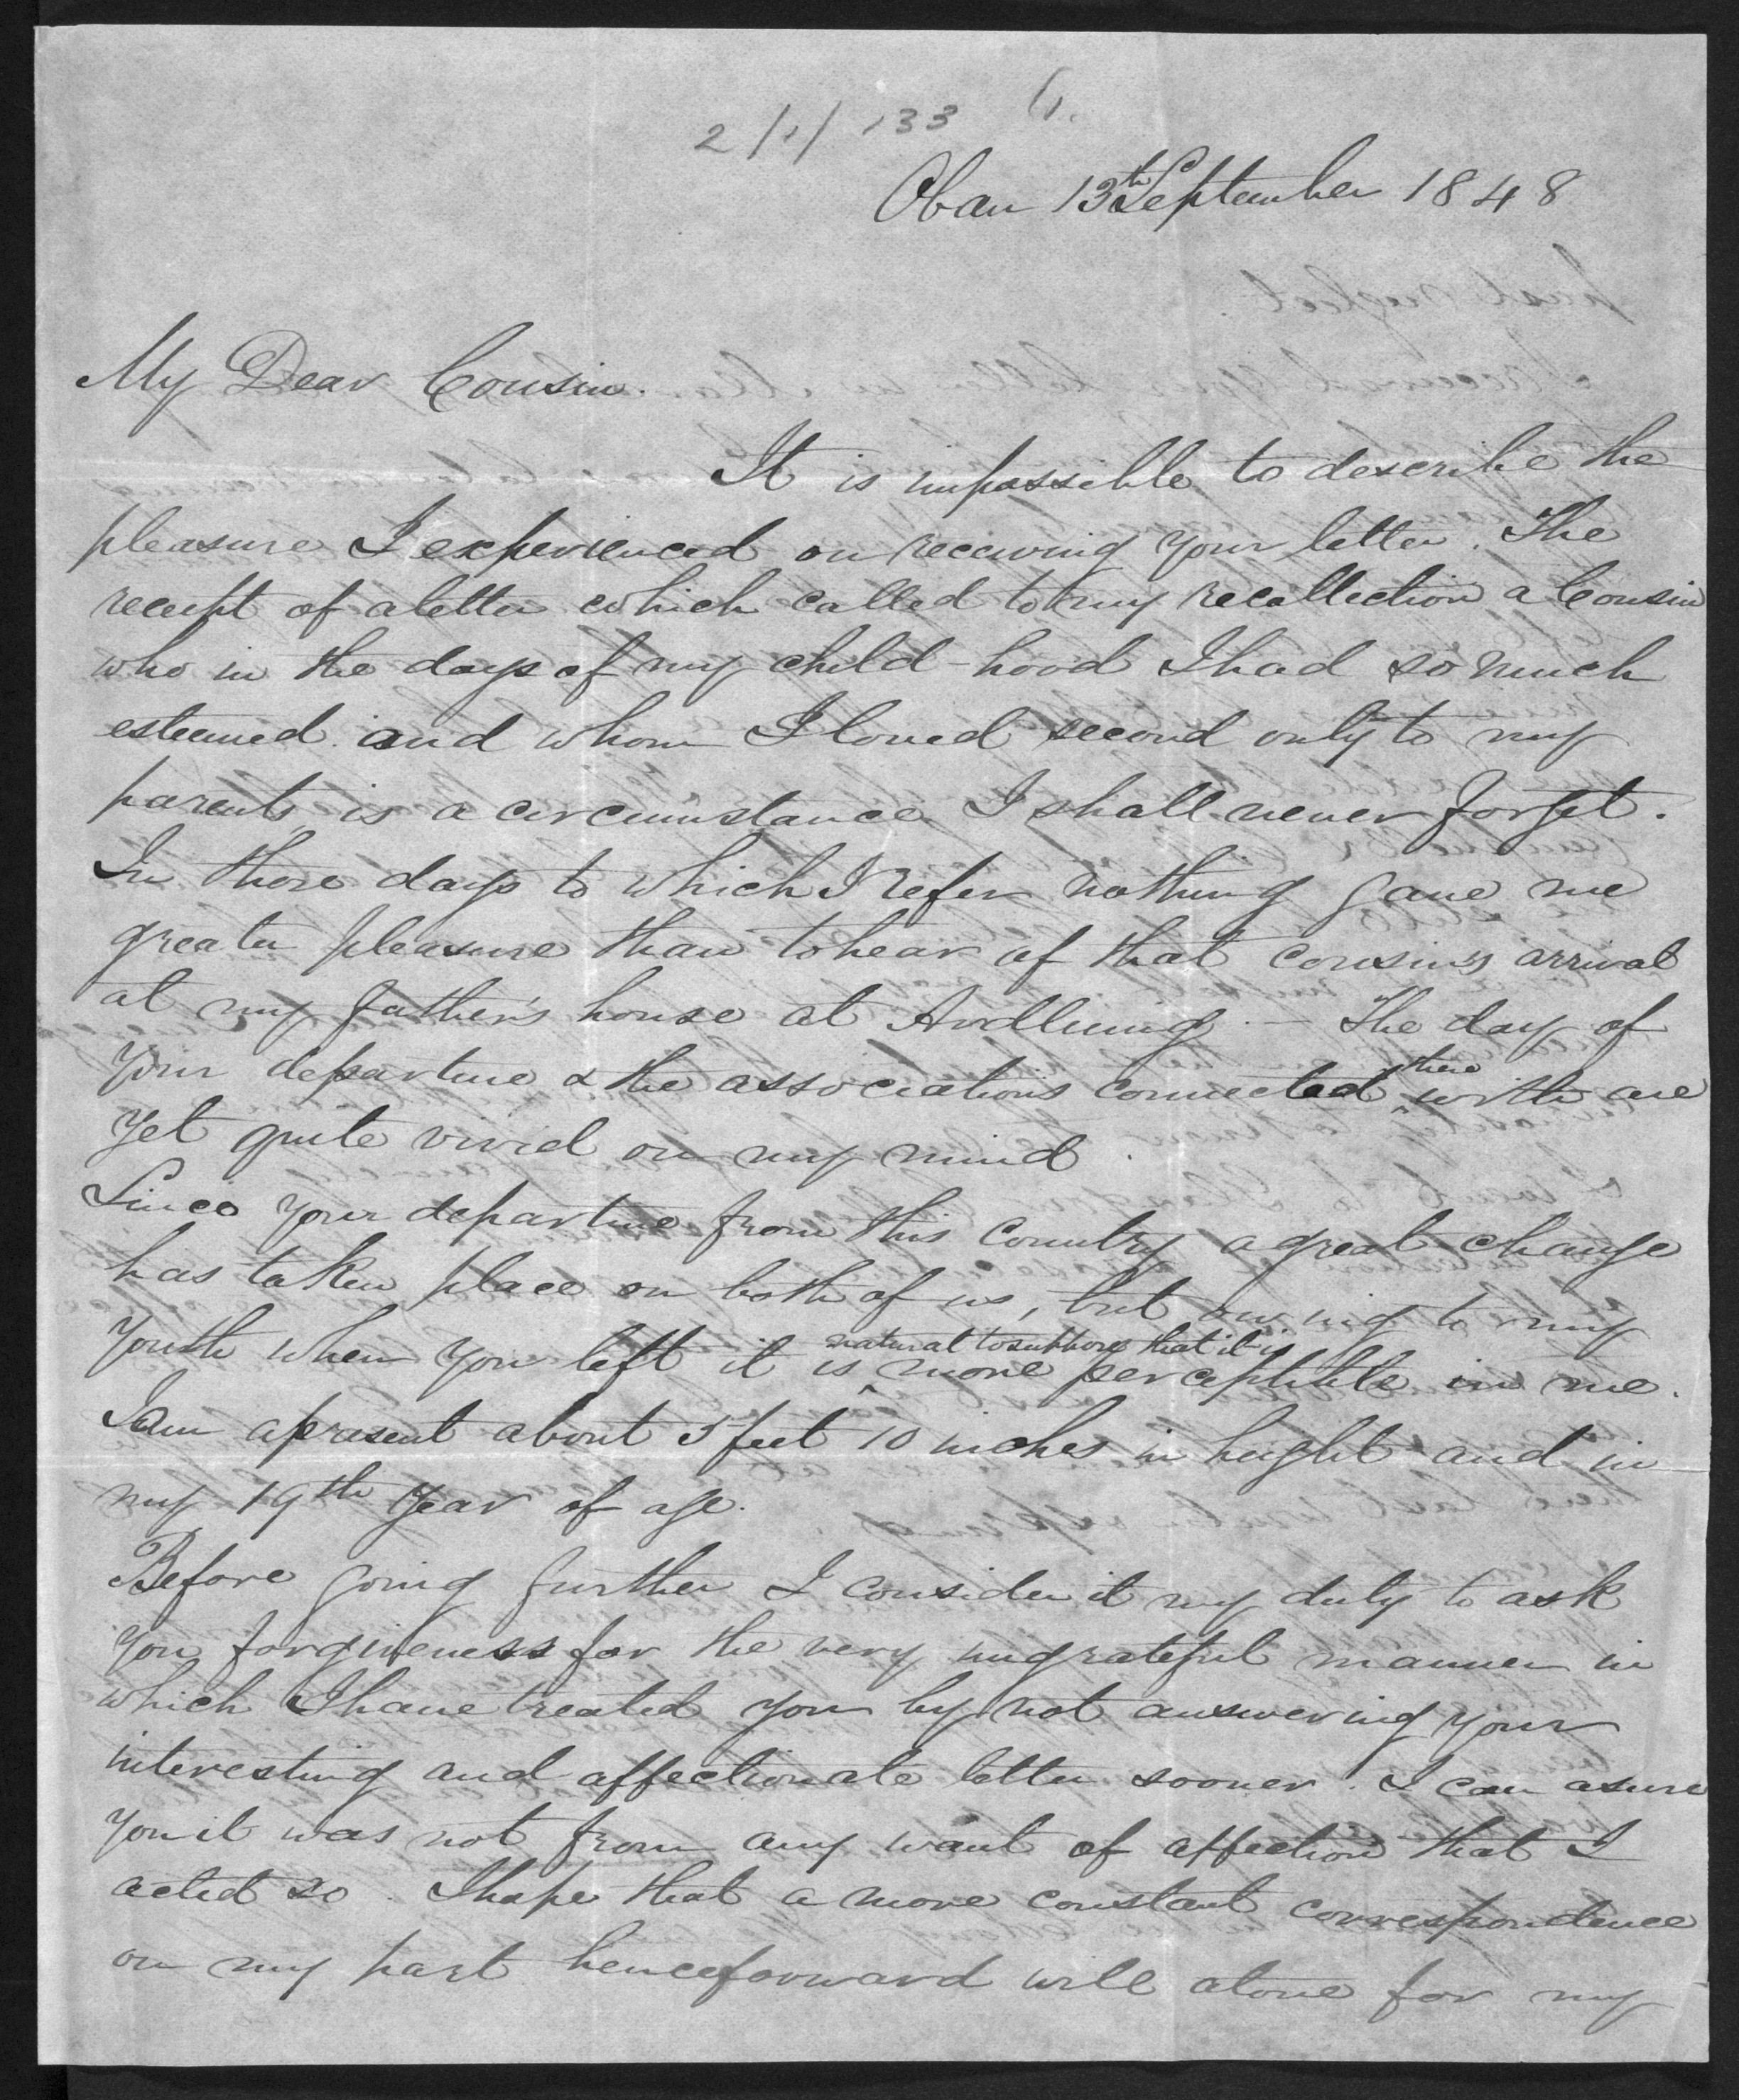 2/1/133 6.
Oban 13th September 1848
My Dear Cousin.
It is impossible to describe the
pleasure I experienced on receiving your letter. The
receipt of a letter which called to my recollection a Cousin
who in the days of my child-hood I had so much
esteemed and whom I loved second only to my
parents is a circumstance I shall never forget.
In those days to which I refer nothing gave me
greater pleasure than to hear of that cousin's arrival
at my father's house at Ardlluing. – The day of
your departure & the associations connected there with are
yet quite vivid on my mind.
Since your departure from this Country a great change
has taken place on both of us, but owing to my
Youth when you left it is natural to suppose that it is more perceptible in me.
I am apresent about 5 feet 10 inches in height and in
my 19th year of age.
Before going further I consider it my duty to ask
you forgiveness for the very ungrateful manner in
which I have treated you by not answering your
interesting and affectionate letter sooner. I can asure
you it was not from any want of affection that I
acted so. I hope that a more constant correspondence
on my part henceforward will atone for my